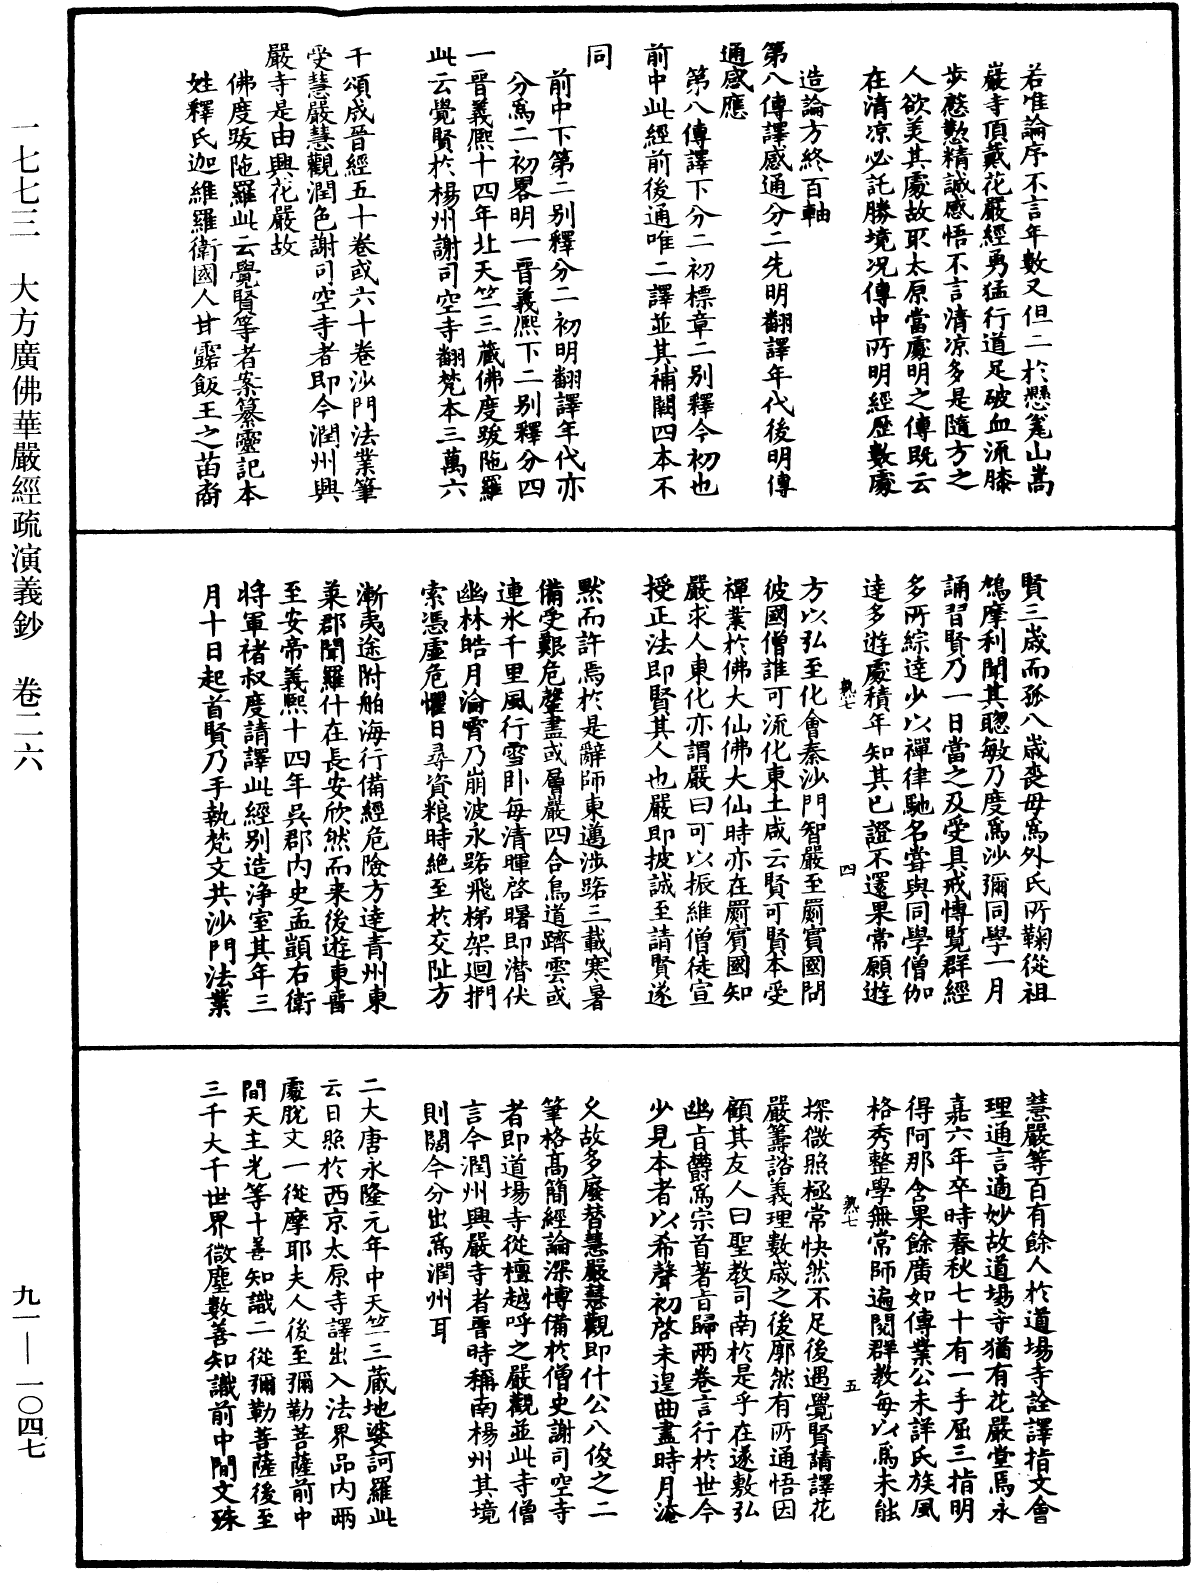 一七七三　大方廣佛華嚴經疏演義鈔　卷二六
九一—一〇四七
若唯論序不言年數又但二於懸瓮山嵩
巖寺頂戴花嚴經勇猛行道足破血流膝
步慇懃精誠感悟不言清凉多是隨方之
人欲美其處故取太原當處明之傳既云
在清凉必託勝境况傳中所明經歷數處
造論方終百軸
第八傳譯感通分二先明翻譯年代後明傳
通感應
第八傳譯下分二初標章二別釋今初也
前中此經前後通唯二譯並其補闕四本不
同
前中下第二別釋分二初明翻譯年代亦
分爲二初畧明一晉義熈下二別釋分四
一晉義熈十四年北天竺三藏佛度跋陁羅
此云覺賢於楊州謝司空寺翻梵本三萬六
千頌成晉經五十卷或六十卷沙門法業筆
受慧嚴慧觀潤色謝司空寺者即今潤州興
嚴寺是由興花嚴故
佛度跋陁羅此云覺賢等者案纂靈記本
姓釋氏迦維羅衛國人甘露飯王之苗裔
賢三歲而孤八歲喪母爲外氏所鞠從祖
鳩摩利聞其聦敏乃度爲沙彌同學一月
誦習賢乃一日當之及受具戒愽覧群經
多所綜達少以禪律馳名甞與同學僧伽
達多遊處積年知其已證不還果常願遊
方以弘至化會秦沙門智嚴至罽賓國問
彼國僧誰可流化東土咸云賢可賢本受
禪業於佛大仙佛大仙時亦在罽賓國知
嚴求人東化亦謂嚴曰可以振維僧徒宣
授正法即賢其人也嚴即披誠至請賢遂
默而許焉於是辭師東邁涉路三載寒暑
備受艱危罄盡或層巖四合鳥道躋雲或
連氷千里風行雪卧每清暉啓曙即潜伏
幽林皓月淪霄乃崩波永路飛梯架迴捫
索憑虛危懼日尋資粮時絶至於交阯方
漸夷途附舶海行備經危險方達青州東
萊郡聞羅什在長安欣然而来後遊東晉
至安帝義熙十四年吳郡内史孟顗右衛
将軍禇叔度請譯此經别造浄室其年三
月十日起首賢乃手執梵文共沙門法業
慧嚴等百有餘人於道場寺詮譯指文會
理通言適妙故道場寺猶有花嚴堂焉永
嘉六年卒時春秋七十有一手屈三指明
得阿那含果餘廣如傳業公未詳氏族風
格秀整學無常師遍閱群教每以爲未能
探微照極常怏然不足後遇覺賢請譯花
嚴籌諮義理數歲之後廓然有所通悟因
顧其友人曰聖教司南於是乎在遂敷弘
幽㫖欝爲宗首著㫖歸兩卷言行於世今
少見本者以希聲初啓未遑曲盡時月淹
久故多廢替慧嚴慧觀即什公八俊之二
筆格髙簡經論深愽備於僧史謝司空寺
者即道場寺從檀越呼之嚴觀並此寺僧
言今潤州興嚴寺者晉時稱南楊州其境
則闊今分出爲潤州耳
二大唐永隆元年中天竺三蔵地婆訶羅此
云日照於西京太原寺譯出入法界品内兩
處脱文一從摩耶夫人後至彌勒菩薩前中
間天主光等十善知識二從彌勒菩薩後至
三千大千世界微塵數善知識前中間文殊
𤍠七
四
𤍠七
五